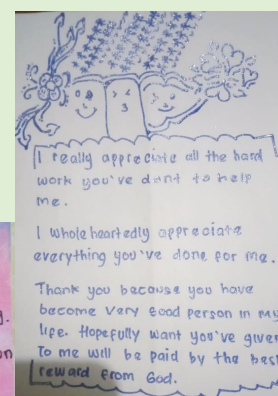 I really appreciate all the hard
work you've dont to help
me.
I whole heartedly appreciate
everything you've done for me.
Thank you because you have
become very good person in my
life. Hopefully want you've given
To me will be paid by the best
reward from God.
y.
on